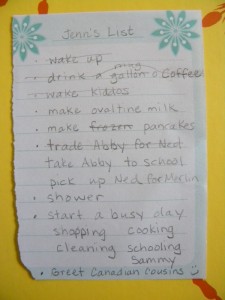 Jenn's List
• wake up
mug
• drink a gallon o Coffee
• wake kiddos
• make ovaltine milk
• make frozen pancakes
• trade Abby for Ned
take Abby to school
pick up Ned for Merlin
• shower
• start a busy day
shopping cooking
cleaning schooling
Sammy
• Greet Canadian Cousins